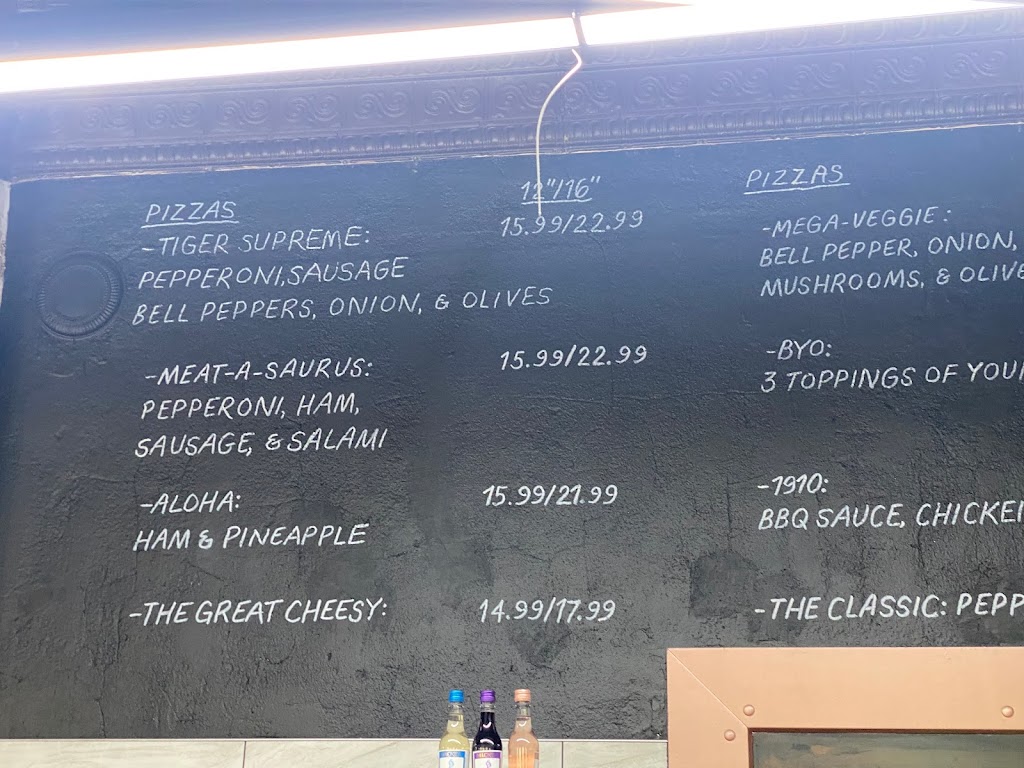 PIZZAS 12"/16"
-TIGER SUPREME: 15.99/22.99
PEPPERONI, SAUSAGE
BELL PEPPERS, ONION, & OLIVES
-MEAT-A-SAURUS: 15.99/22.99
PEPPERONI, HAM,
SAUSAGE, & SALAMI
-ALOHA: 15.99/21.99
HAM & PINEAPPLE
-THE GREAT CHEESY: 14.99/17.99
PIZZAS
-MEGA-VEGGIE:
BELL PEPPER, ONION,
MUSHROOMS, & OLIVE
-BYO:
3 TOPPINGS OF YOU
-1910:
BBQ SAUCE, CHICKE
-THE CLASSIC: PEPP